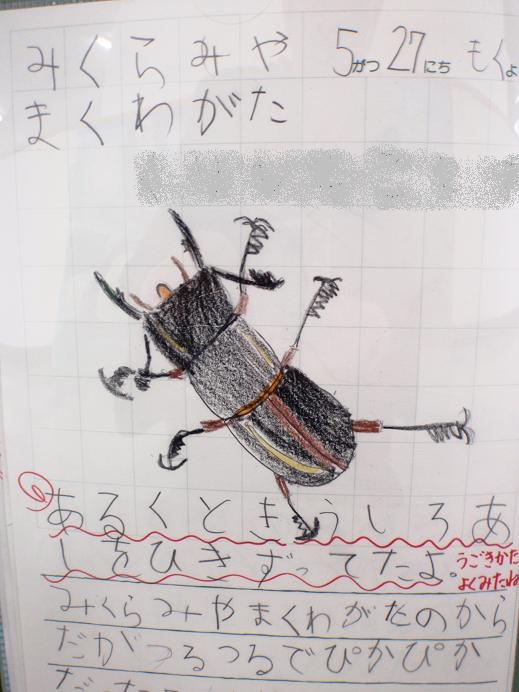 みくらみや
まくわがた
5がつ27にち もくよ
あるくとき うしろあ
しをひきずってたよ。
うごきかた
よくみたね
みくらみやまくわがたのから
だがつるつるでぴかぴか